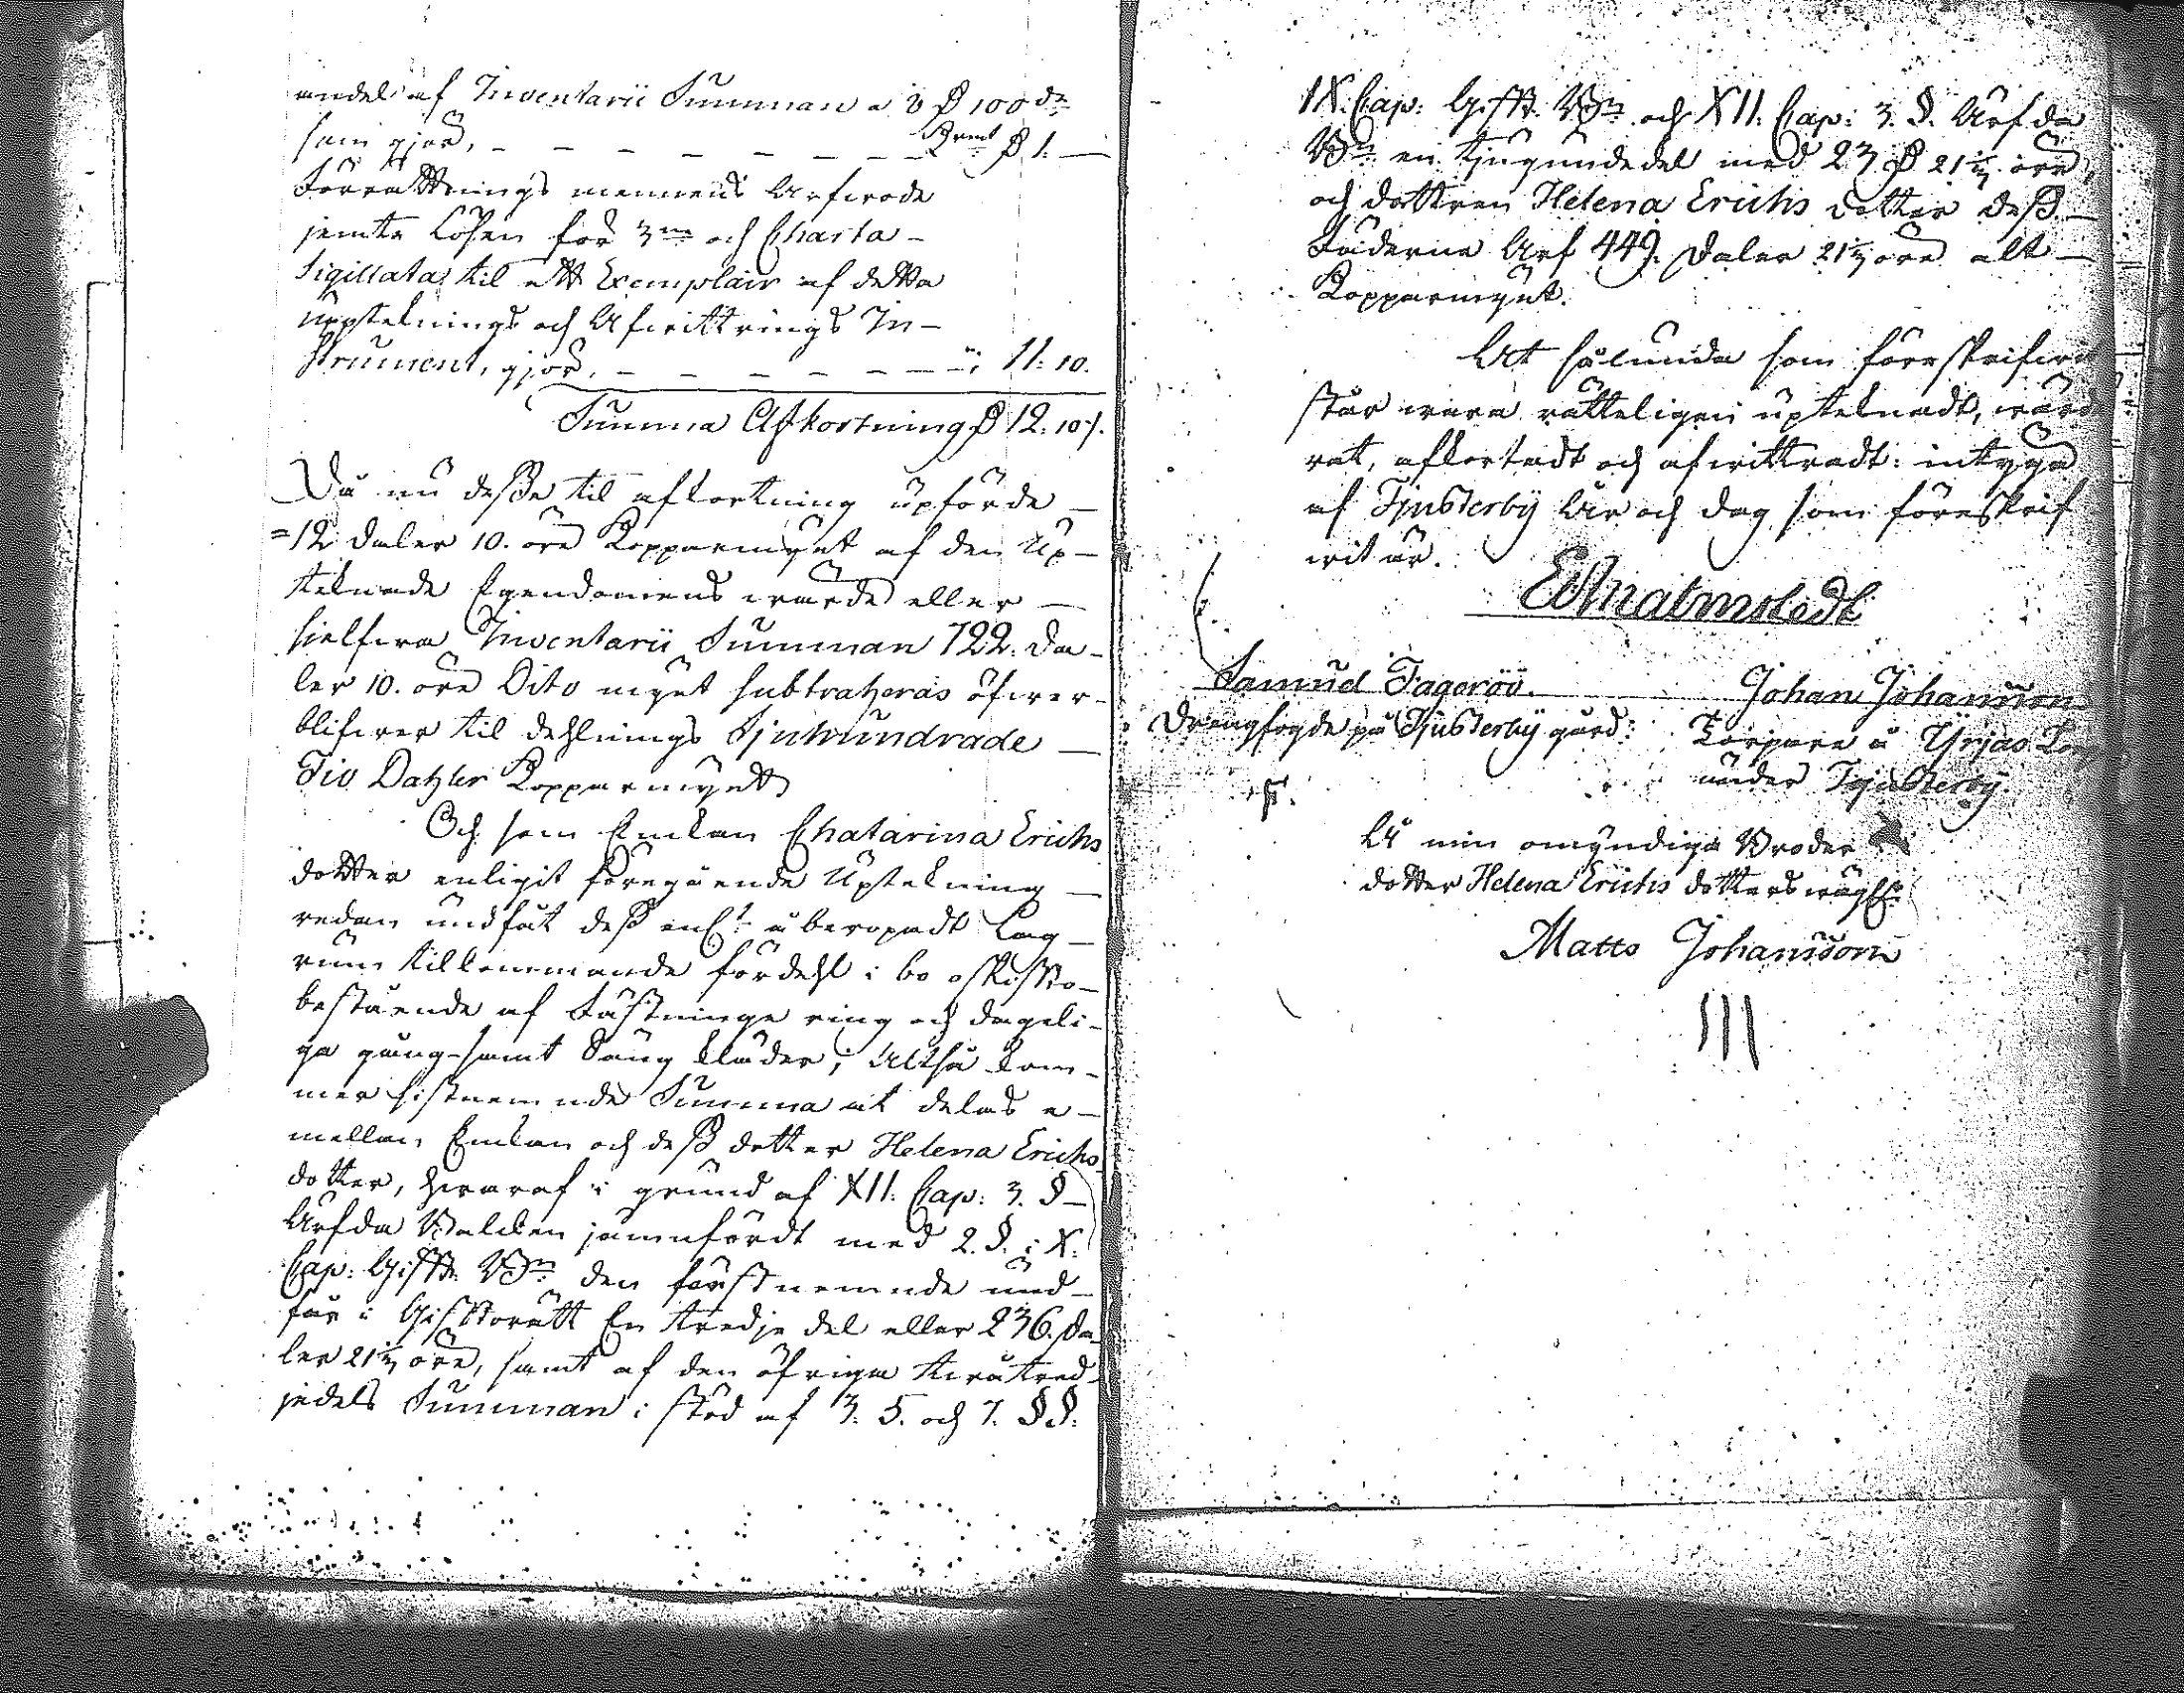 andel af Inventarii Summan a 8 D 100 de
som giör, - - - - - - - Kpmt D 1: —
Förrättnings mennens Arfwode
jemte Lösen för 3ne och Charta-
Sigillata til ett Exemplair af detta
Upptecknings och Afwittrings In-
strument, giör, - - - - - - " 11: 10.
Summa Afkortning D 12: 10 /.
Då nu desse til afkortning upförde —
= 12 daler 10. öre Kopparmynt af den Up-
teknade Egendomens wärde eller —
sielfwa Inventarii Summan 722. da-
ler 10. öre Dito mynt subtraheras öfwer-
blifwer til dehlnings Sjuhundrade —
Tio Dahler Kopparmynt
Och som Enkan Chatarina Erichs
dotter enligit föregående Uptekning —
redan undfåt dess enl:t åberopadt Lag-
rum tilkommande fördehl i bo oskifto-
bestående af Fästninge ring och dageli-
ga gång- samt Säng kläder; Altså kom-
mer sistnemnde Summa at delas e-
mellan Enkan och dess dotter Helena Erichs
dotter, hwaraf i grund af XII. Cap: 3. § -
Ärfda Balken jämnfördt med 2. §. i X.
Cap: Gifft. B:n den förstnemnde und-
får i Gifftorätt En tredje del eller 236. Da-
ler 21⅓ öre, samt af den öfriga twåtred-
jedels Summan i stöd af 3. 5. och 7. §§.
IX. Cap: Gifft. B:n och XII. Cap: 3. §. Ärfda
B:n en tjugundedel med 23 D 21⅓ öre,
och dottren Helena Erichs dotter dess —
Fäderne Arf 449. Daler 21⅓ öre alt —
Kopparmynt.
At sålunda som föreskrifwit
står wara rätteligen upteknadt, wärde
rat, afkortadt och afwittradt: intyga
af Tjusterby År och dag som föreskrif
wit är.
Ed Malmstedt
Samuel Fageröö. Johan Johansson
Drengfogde på Tjusterby gård: Torpare å Yrjas
under Tjusterby.
På min omyndiga Broder
dotter Helena Erichs dotters wägnar
Matts Johansson